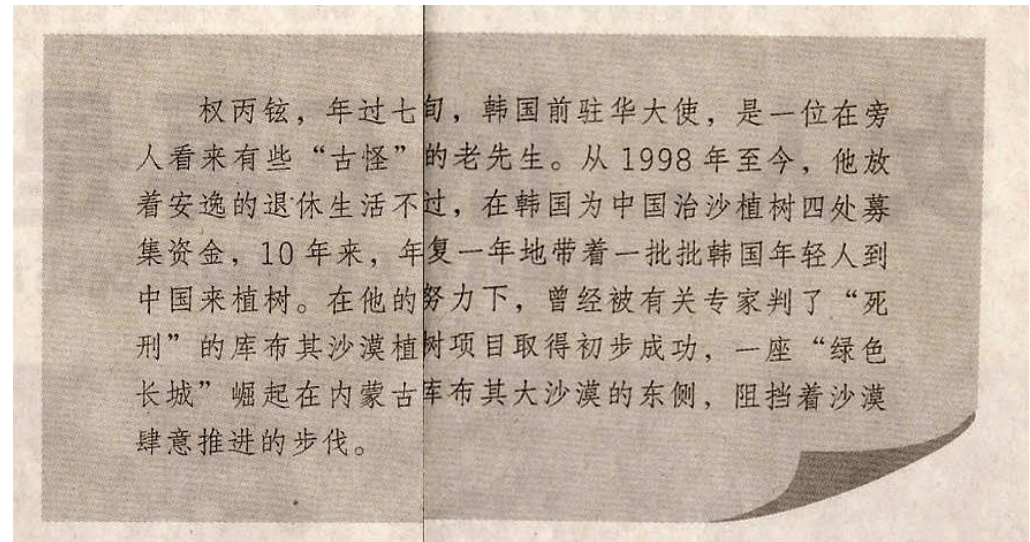 权丙铉，年过七旬，韩国前驻华大使，是一位在旁
人看来有些“古怪”的老先生。从 1998 年至今，他放
着安逸的退休生活不过，在韩国为中国治沙植树四处募
集资金，10 年来，年复一年地带着一批批韩国年轻人到
中国来植树。在他的努力下，曾经被有关专家判了“死
刑”的库布其沙漠植树项目取得初步成功，一座“绿色
长城”崛起在内蒙古库布其大沙漠的东侧，阻挡着沙漠
肆意推进的步伐。